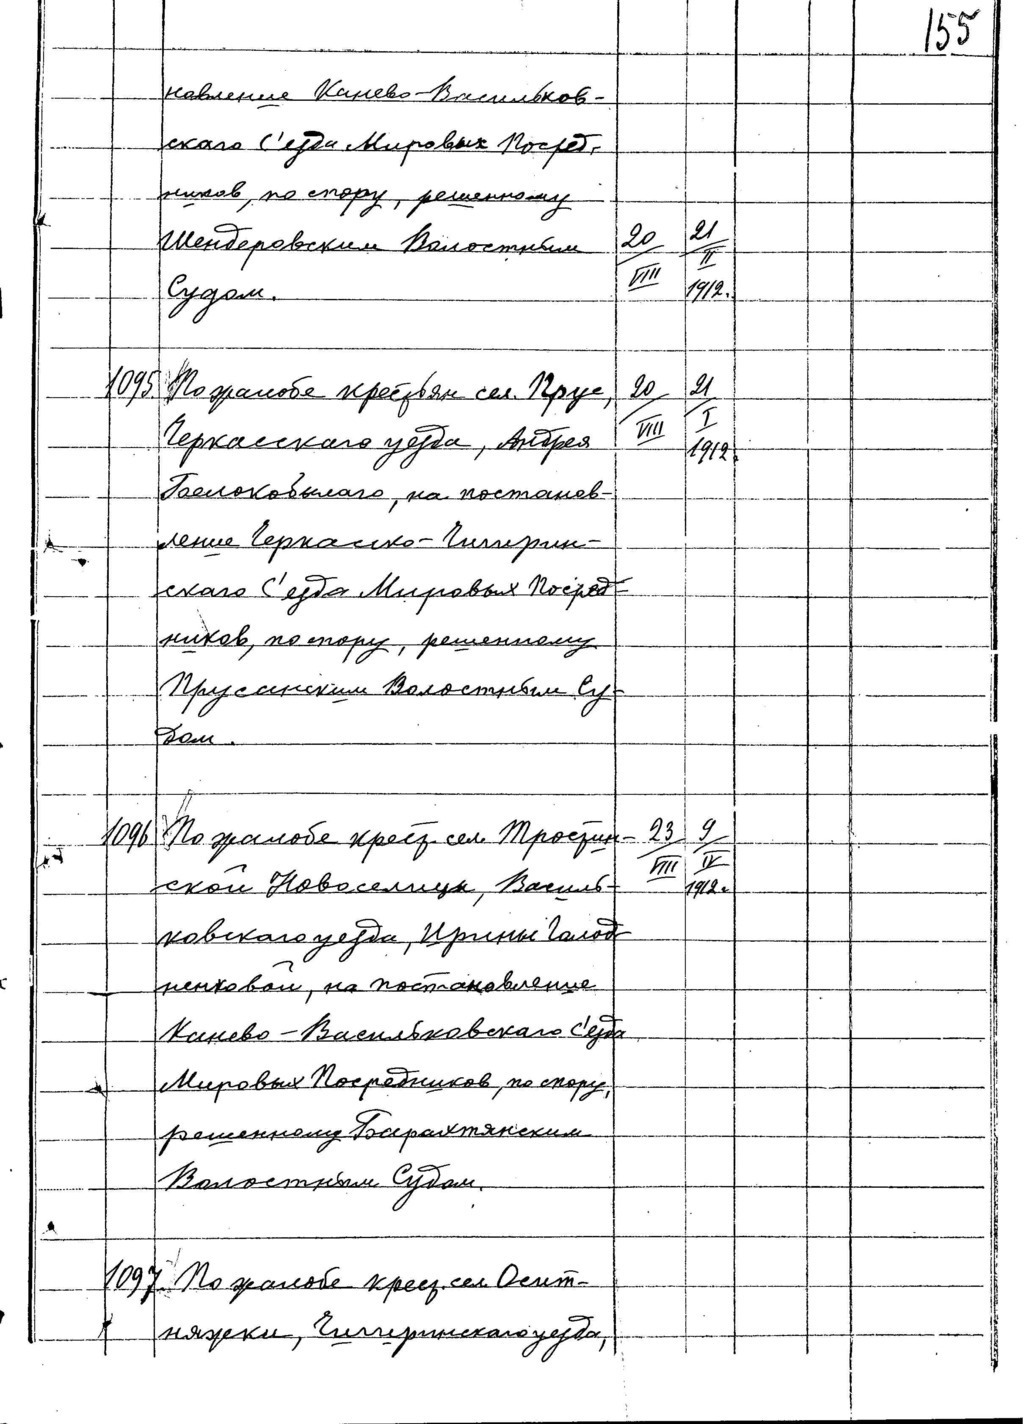 155
новление Канево-Васильков-
скаго С'езда Мировых Посред-
ников, по спору, решенному
Шендеровским Волостным 20 21
Судом. VIII II 1912.
1095. По жалобе крестьян сел. Прус, 20 21
Черкасскаго уезда, Андрея VIII I 1912.
Белокобылаго, на постанов-
ление Черкасско-Чигирин-
скаго С'езда Мировых Посред-
ников, по спору, решенному
Прусянским Волостным Су-
дом.
1096 По жалобе крест. сел. Тростин- 23 9
ской Новоселицы, Василь- VIII IV 1912.
ковскаго уезда, Ирины Голод-
ненковой, на постановление
Канево-Васильковскаго С'езда
Мировых Посредников, по спору,
решенному Барахтянским
Волостным Судом.
1097. По жалобе крест. сел. Осит-
няжки, Чигиринскаго уезда,